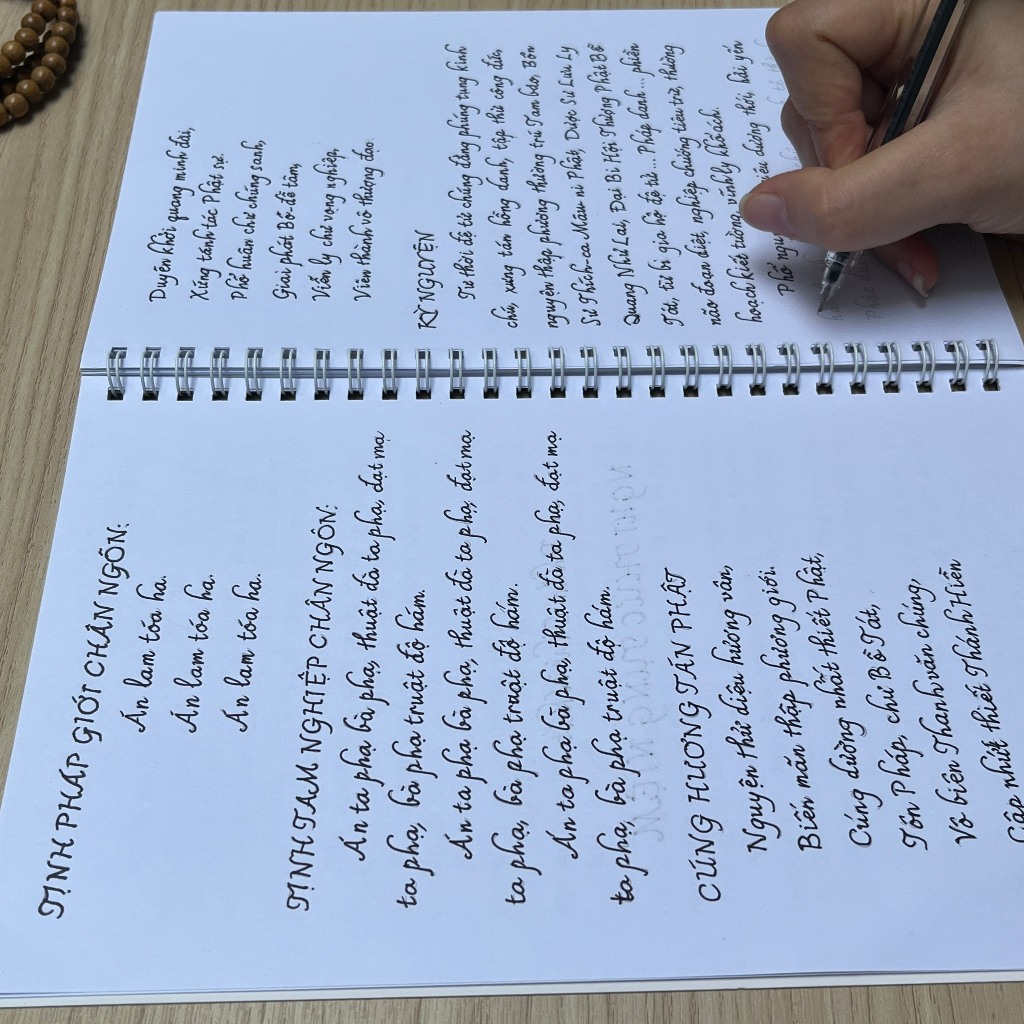 TỊNH PHÁP GIỚI CHÂN NGÔN:
Án lam tóa ha.
Án lam tóa ha.
Án lam tóa ha.
TỊNH TAM NGHIỆP CHÂN NGÔN:
Án ta phạ bà phạ, thuật đà ta phạ, đạt mạ
ta phạ, bà phạ truật độ hám.
Án ta phạ bà phạ, thuật đà ta phạ, đạt mạ
ta phạ, bà phạ truật độ hám.
Án ta phạ bà phạ, thuật đà ta phạ, đạt mạ
ta phạ, bà phạ truật độ hám.
CÚNG HƯƠNG TÁN PHẬT
Nguyện thử diệu hương vân,
Biến mãn thập phương giới.
Cúng dường nhất thiết Phật,
Tôn Pháp, chư Bồ Tát,
Vô biên Thanh văn chúng,
Cập nhứt thiết Thánh Hiền
Duyên khởi quang minh đài,
Xứng tánh tác Phật sự.
Phổ huân chư chúng sanh,
Giai phát Bồ-đề tâm,
Viễn ly chư vọng nghiệp,
Viên thành vô thượng đạo.
KỲ NGUYỆN
Tư thời đệ tử chúng đẳng phúng tụng kinh
chú, xưng tán hồng danh, tập thử công đức,
nguyện thập phương thường trú Tam bảo, Bổn
Sư Thích-ca Mâu-ni Phật, Dược Sư Lưu Ly
Quang Như Lai, Đại Bi Hội Thượng Phật Bồ
Tát, từ bi gia hộ đệ tử... Pháp danh... phiền
não đoạn diệt, nghiệp chướng tiêu trừ, thường
hoạch kiết tường, vĩnh ly khổ ách.
Phổ dương thới, hải yến